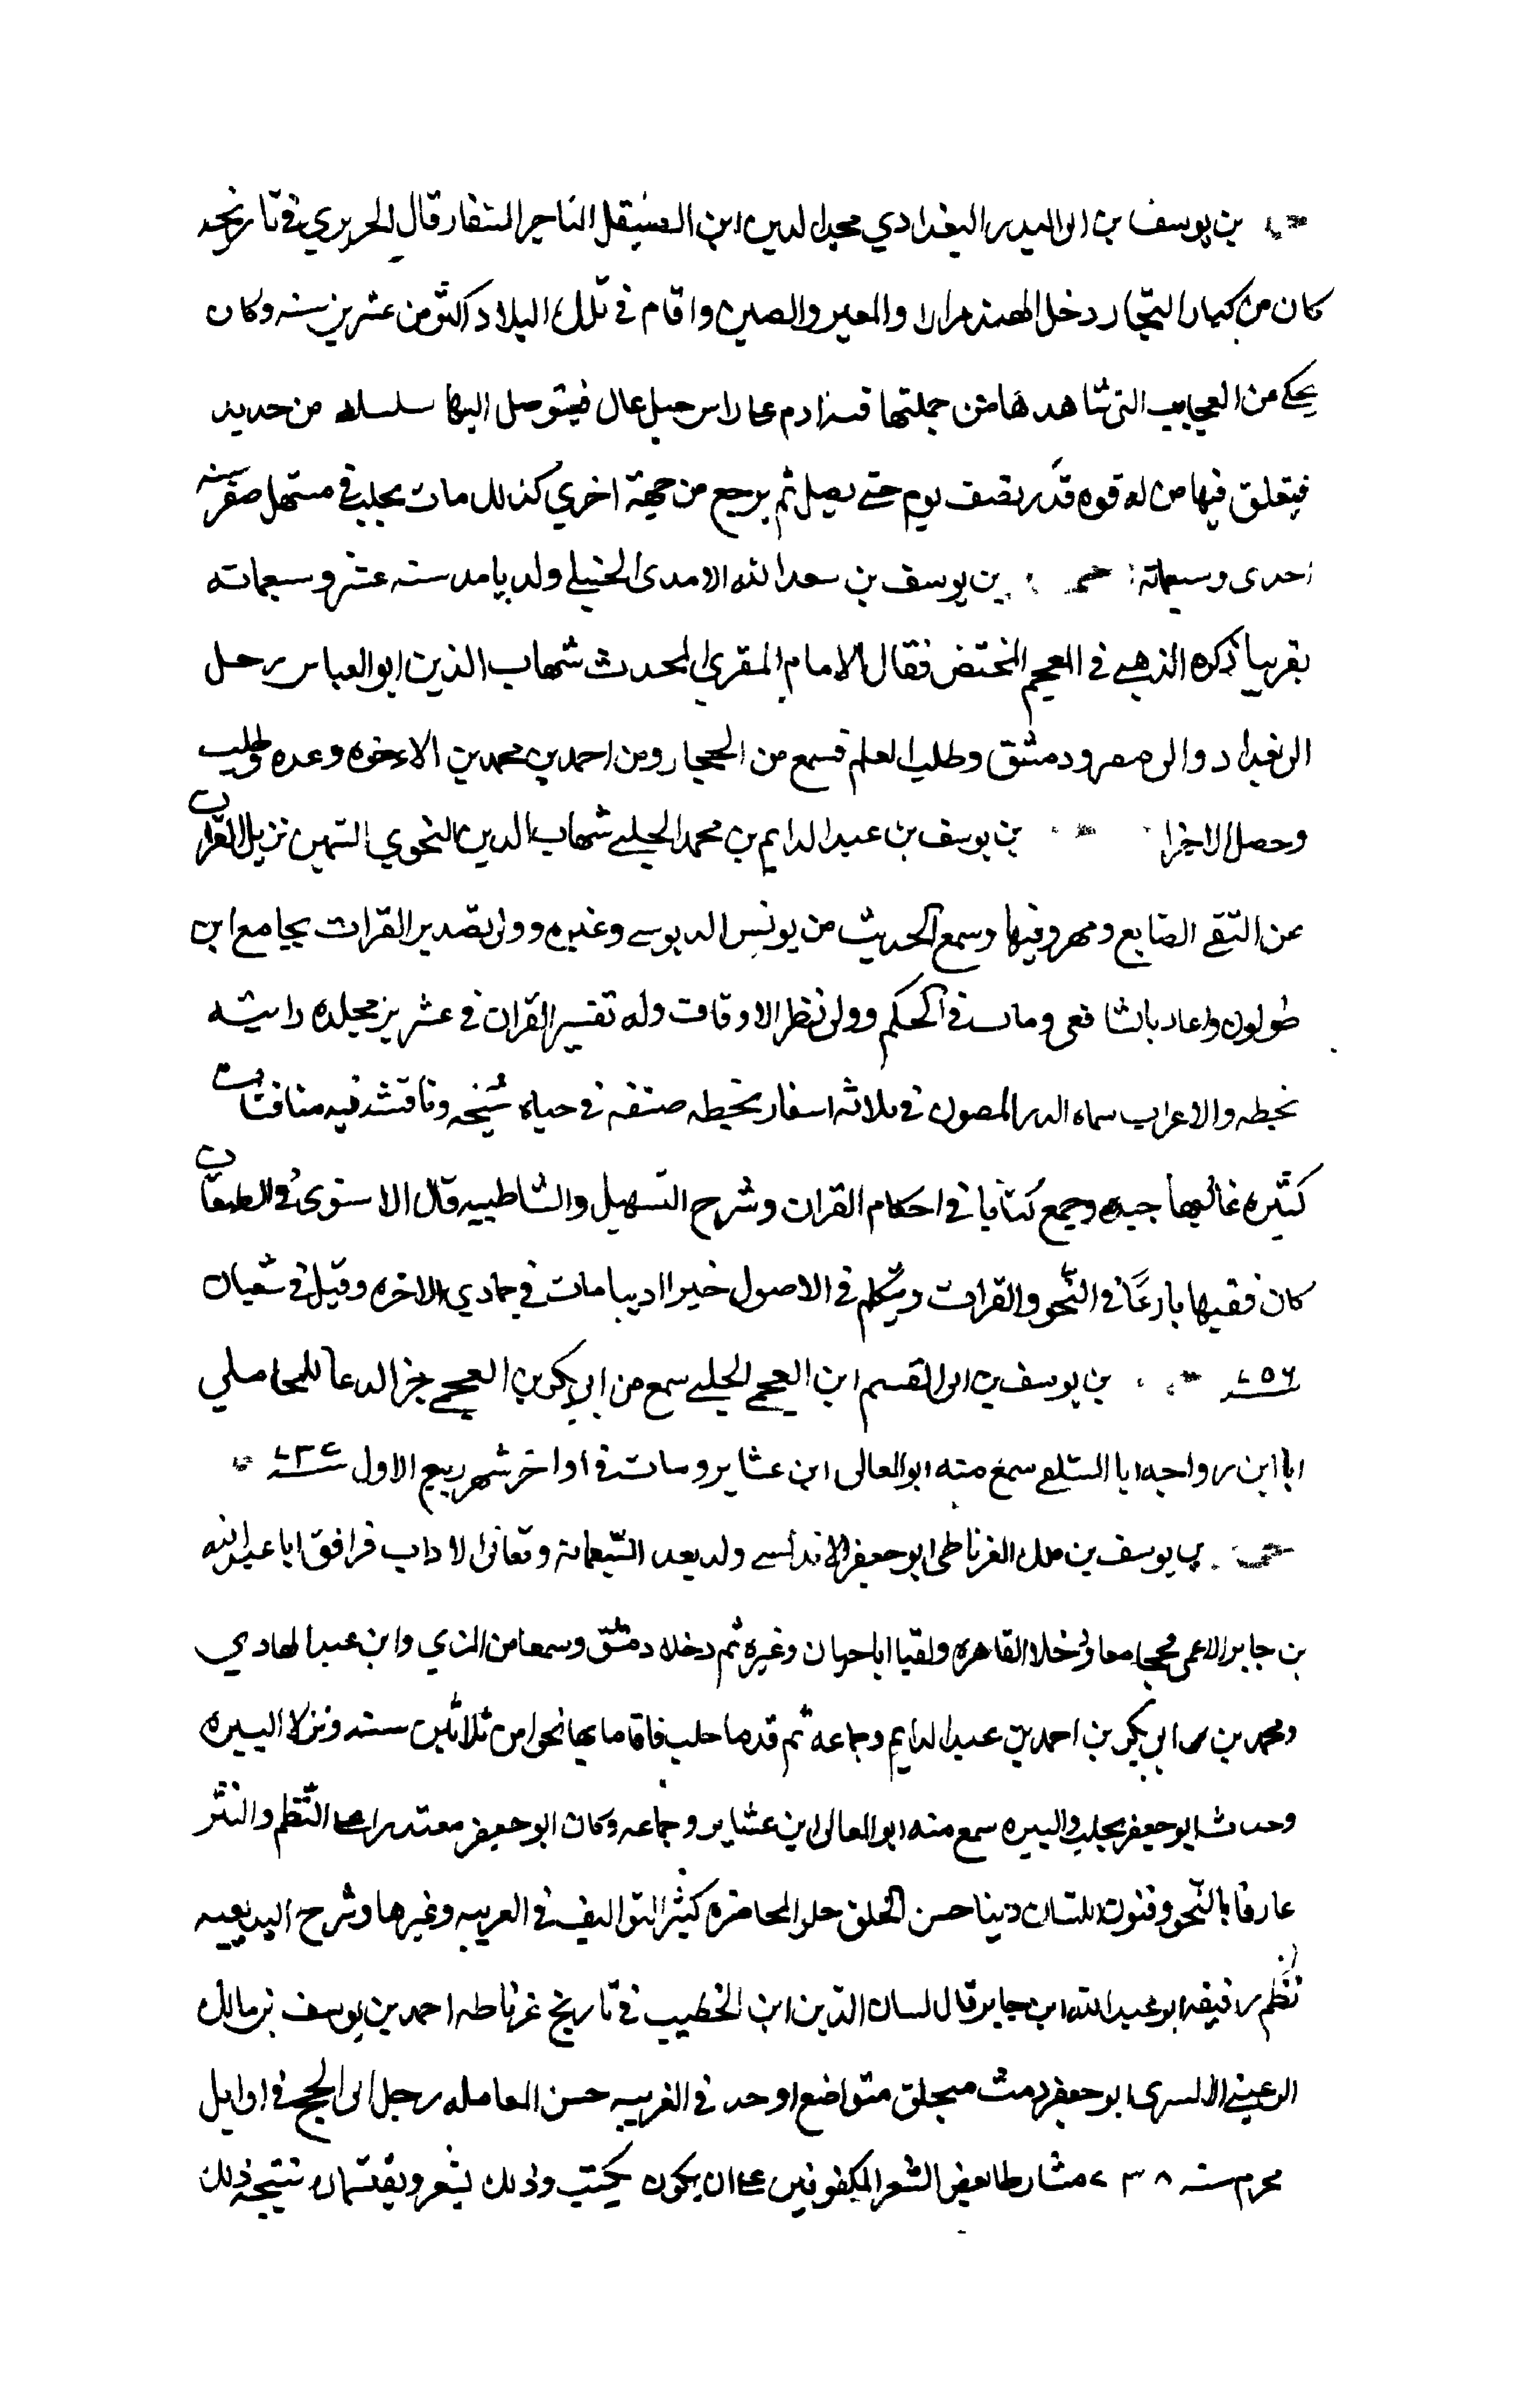 بن يوسف بن ابى البدر البغدادي مجد الدين ابن الصيقل التاجر السفار قال الجزري في تاريخه
كان من كبار التجار دخل الهند مرارا والمعبر والصين واقام في تلك البلاد اكثر من عشرين سنه وكان
يحكي من العجايب التى شاهدها من جملتها قدم ادم على راس جبل عال فيتوصل اليها سلسله من حديد
فيتعلق فيها من له قوه قدر نصف يوم حتى يصل ثم يرجع من جهة اخري كذلك مات بحلب في مستهل صفر سنه
احدى وسبعماتة بن يوسف بن سعد الله الامدى الحنبلي ولد بامد سنه عشر وسبعماته
تقريبا ذكره الذهبي في المعجم المختص فقال الامام المقري المحدث شهاب الدين ابو العباس رحل
الى بغداد والى مصر ودمشق وطلب العلم فسمع من الحجار ومن احمد بن محمد بن الاخوه وعده وطلب
وحصل الاجزا بن يوسف بن عبد الدايم بن محمد الحلبي شهاب الدين النحوي السمين نزيل القران
عن التقي الصايع ومهر فيها وسمع الحديث من يونس الدبوسي وغيره وولى تصدير القرات بجامع ابن
طولون واعاد بالشافعي وناب في الحكم وولى نظر الاوقاف وله تفسير القران في عشرين مجلده رايته
بخطه والاعراب سماه الدر المصون في ثلاثه اسفار بخطه صنفه في حياه شيخه وناقشه فيه مناقشات
كثيره غالبها جيده وجمع كتابا في احكام القران وشرح التسهيل والشاطبيه قال الاسنوى في الطبقات
كان فقيها بارعا في النحو والقرات ويتكلم في الاصول خيرا اديبا مات في جمادي الاخره وقيل في شعبان
سنه ٧٥٦ بن يوسف بن ابى القسم ابن العجمي الحلبي سمع من ابي بكر بن العجمي جز الدعا للمحاملي
انا ابن رواحه انا السلفي سمع منه ابو المعالى ابن عشاير ومات في اواخر شهر ربيع الاول
بن يوسف بن ملك الغرناطي ابو جعفر الاندلسي ولد بعد السبعمائة وتعانى الاداب فرافق ابا عبد الله
بن جابر الاعمى فحجا معا ودخلا القاهره ولقيا ابا حيان وغيره ثم دخلا دمشق وسمعا من المزي وابن عبد الهادي
ومحمد بن ابي بكر بن احمد بن عبد الدايم وجماعه ثم قدما حلب فاقاما بها نحوا من ثلاثين سنه ونزلا البيره
وحدث ابو جعفر بحلب والبيره سمع منه ابو المعالى ابن عشاير وجماعه وكان ابو جعفر مقتدرا على النظم والنثر
عارفا بالنحو وفنون اللسان دينا حسن الخلق حلو المحاضره كثير التواليف في العربيه وغيرها وشرح البديعيه
نظم رفيقه ابو عبد الله ابن جابر قال لسان الدين ابن الخطيب في تاريخ غرناطه احمد بن يوسف بن مالك
الرعيني ابو جعفر دمث متخلق متواضع اوحد في العربيه حسن المعامله رحل الى الحج في اوايل
محرم سنه ٧٣٨ مشارطا بعض الشعرا المكفوفين على ان يكون يكتب وذلك يشعر ويقتسمان نتيجه ذلك